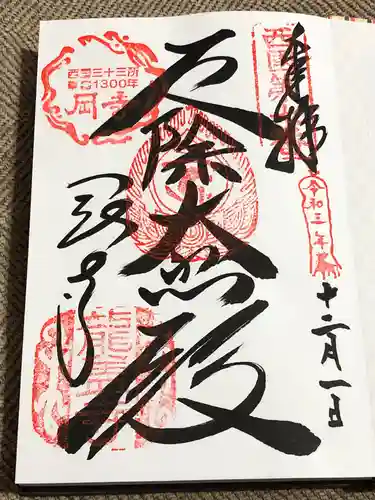 奉拝
西国第七
令和三年
十二月一日
厄除大悲殿
西国三十三所
草創1300年
岡寺
龍蓋寺